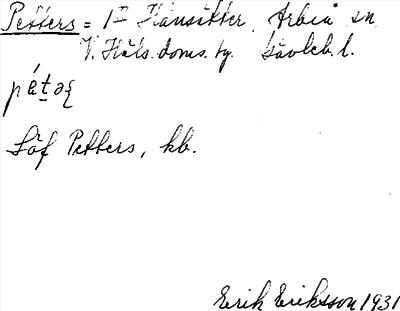 Petters = 1 m Hånsätter, Arbrå sn
V. Häls. doms. tg. Gävleb. l.
pétəʂ
Löf Petters, kb.
Erik Eriksson 1931